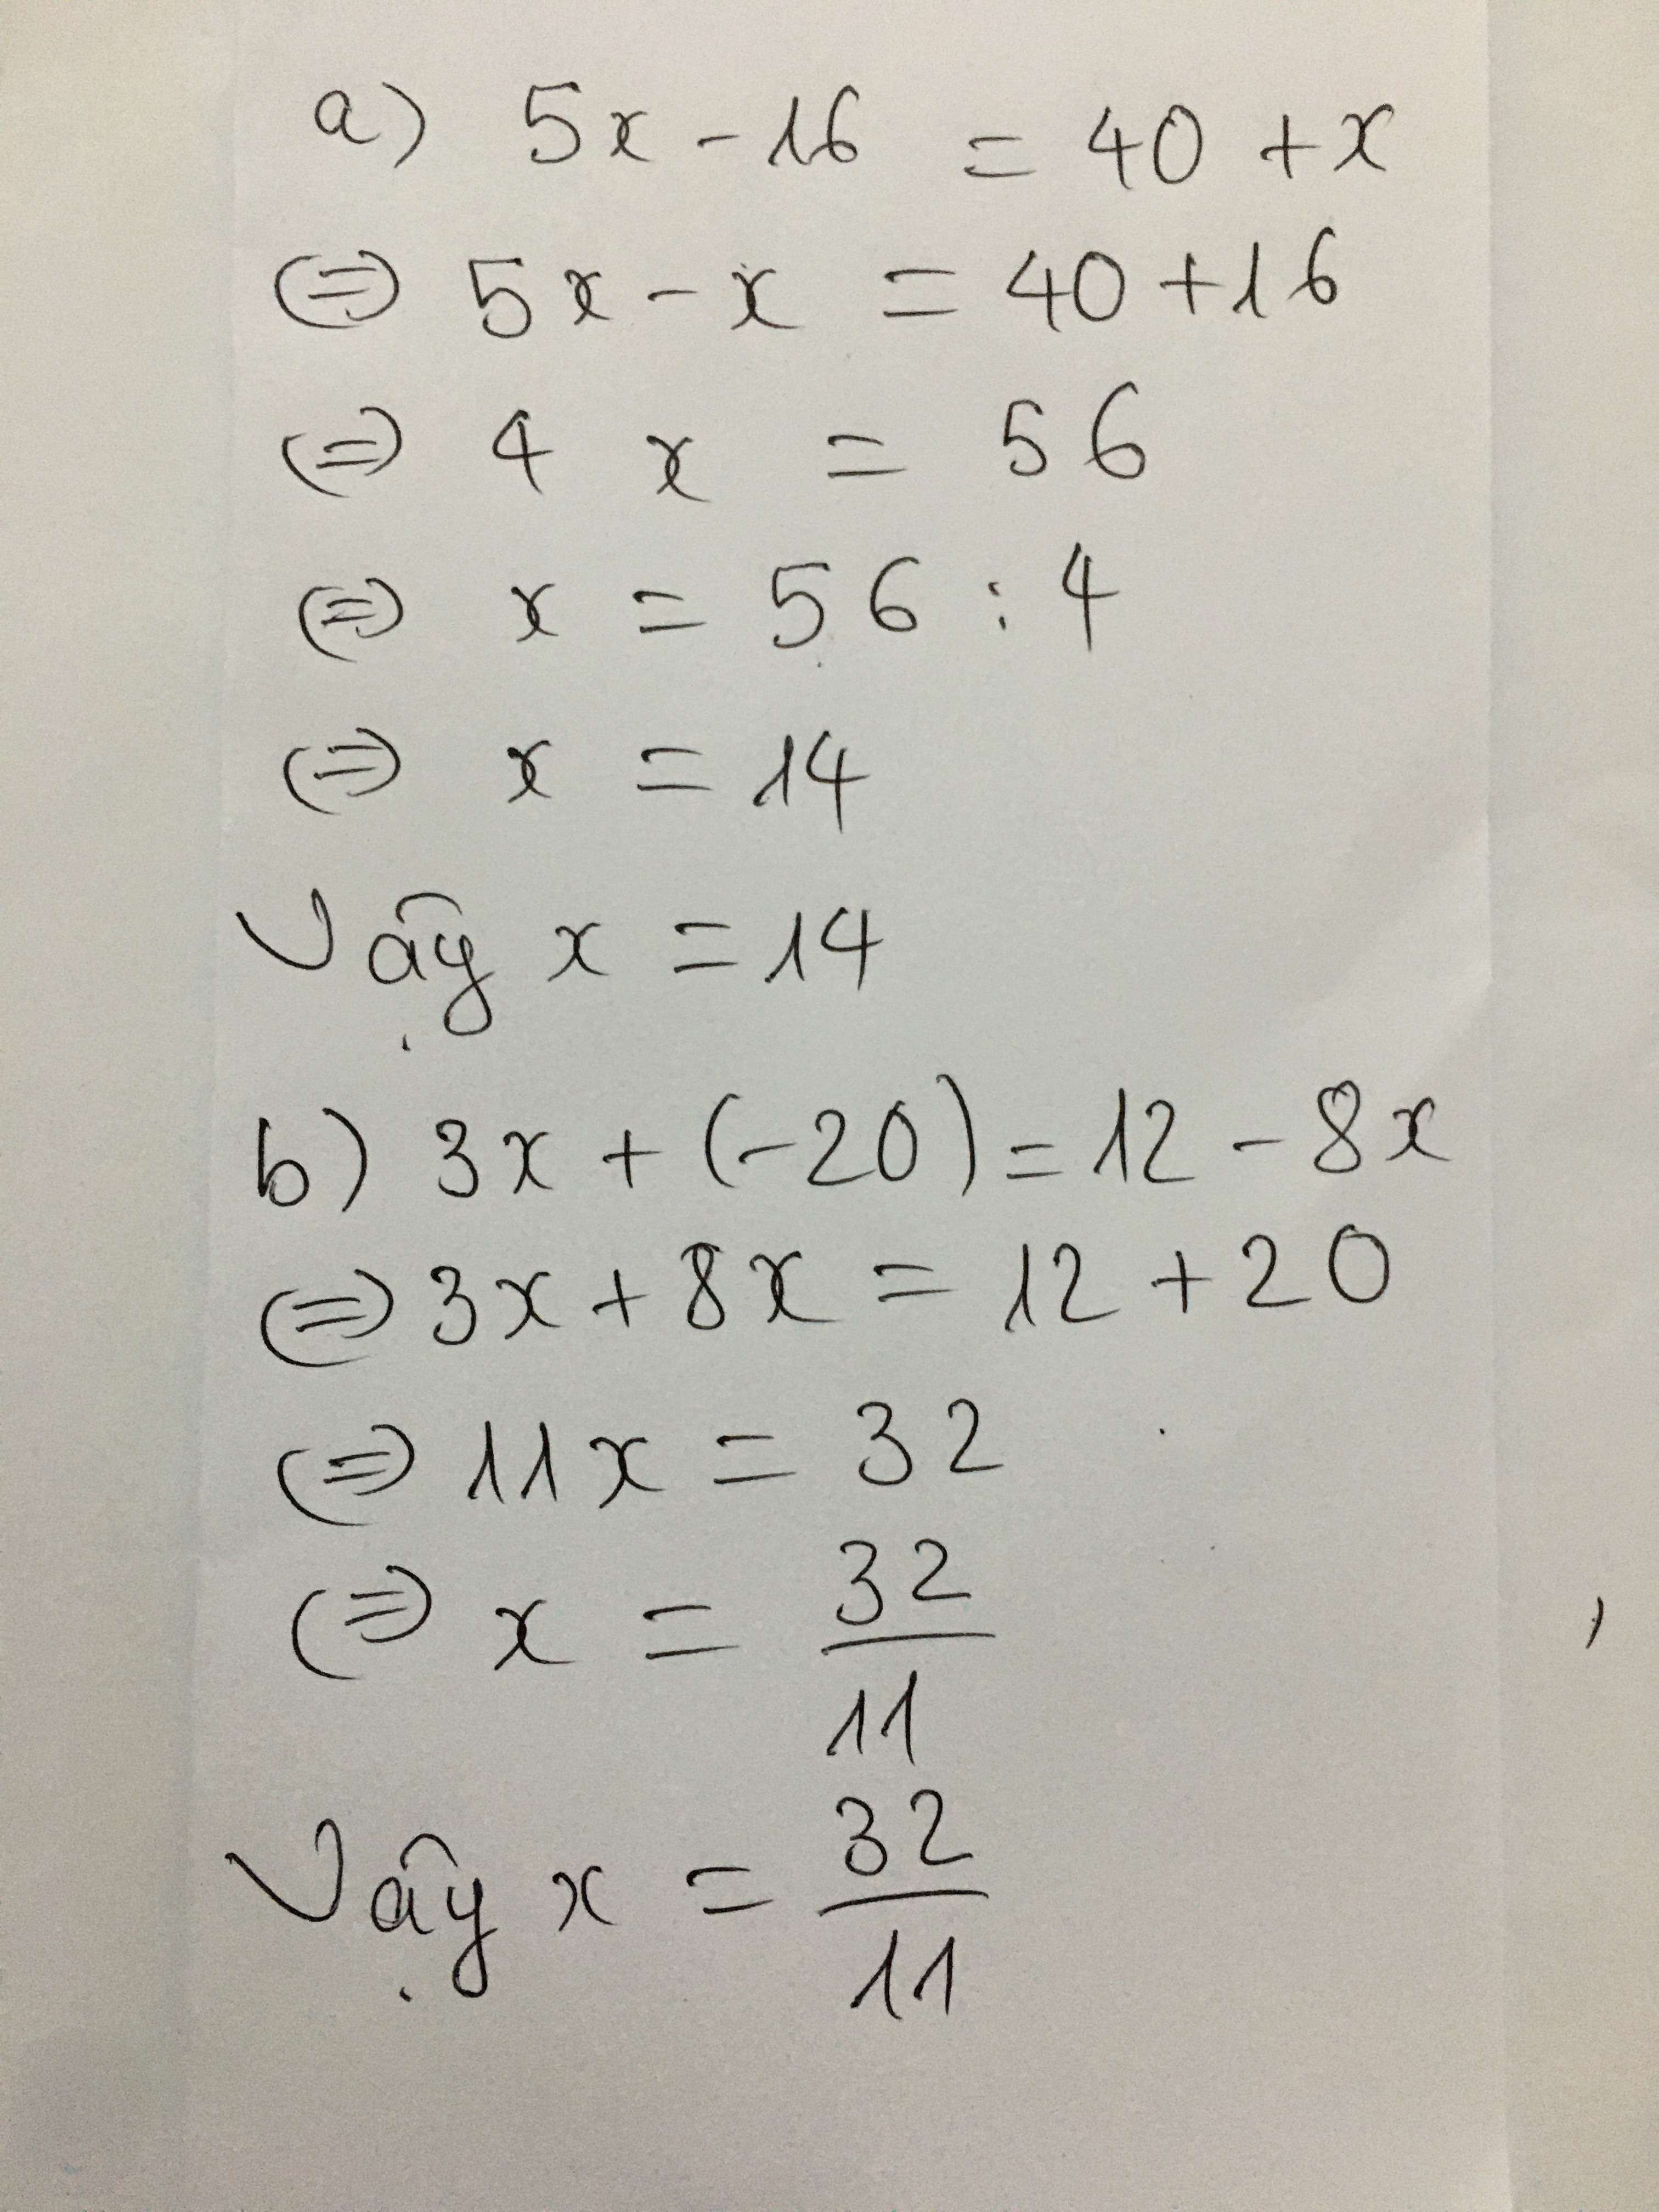 a) 5x - 16 = 40 + x
(=) 5x - x = 40 + 16
(=) 4 x = 56
(=) x = 56 : 4
(=) x = 14
Vậy x = 14
b) 3x + (-20) = 12 - 8x
(=) 3x + 8x = 12 + 20
(=) 11x = 32
(=) x = 32/11
Vậy x = 32/11